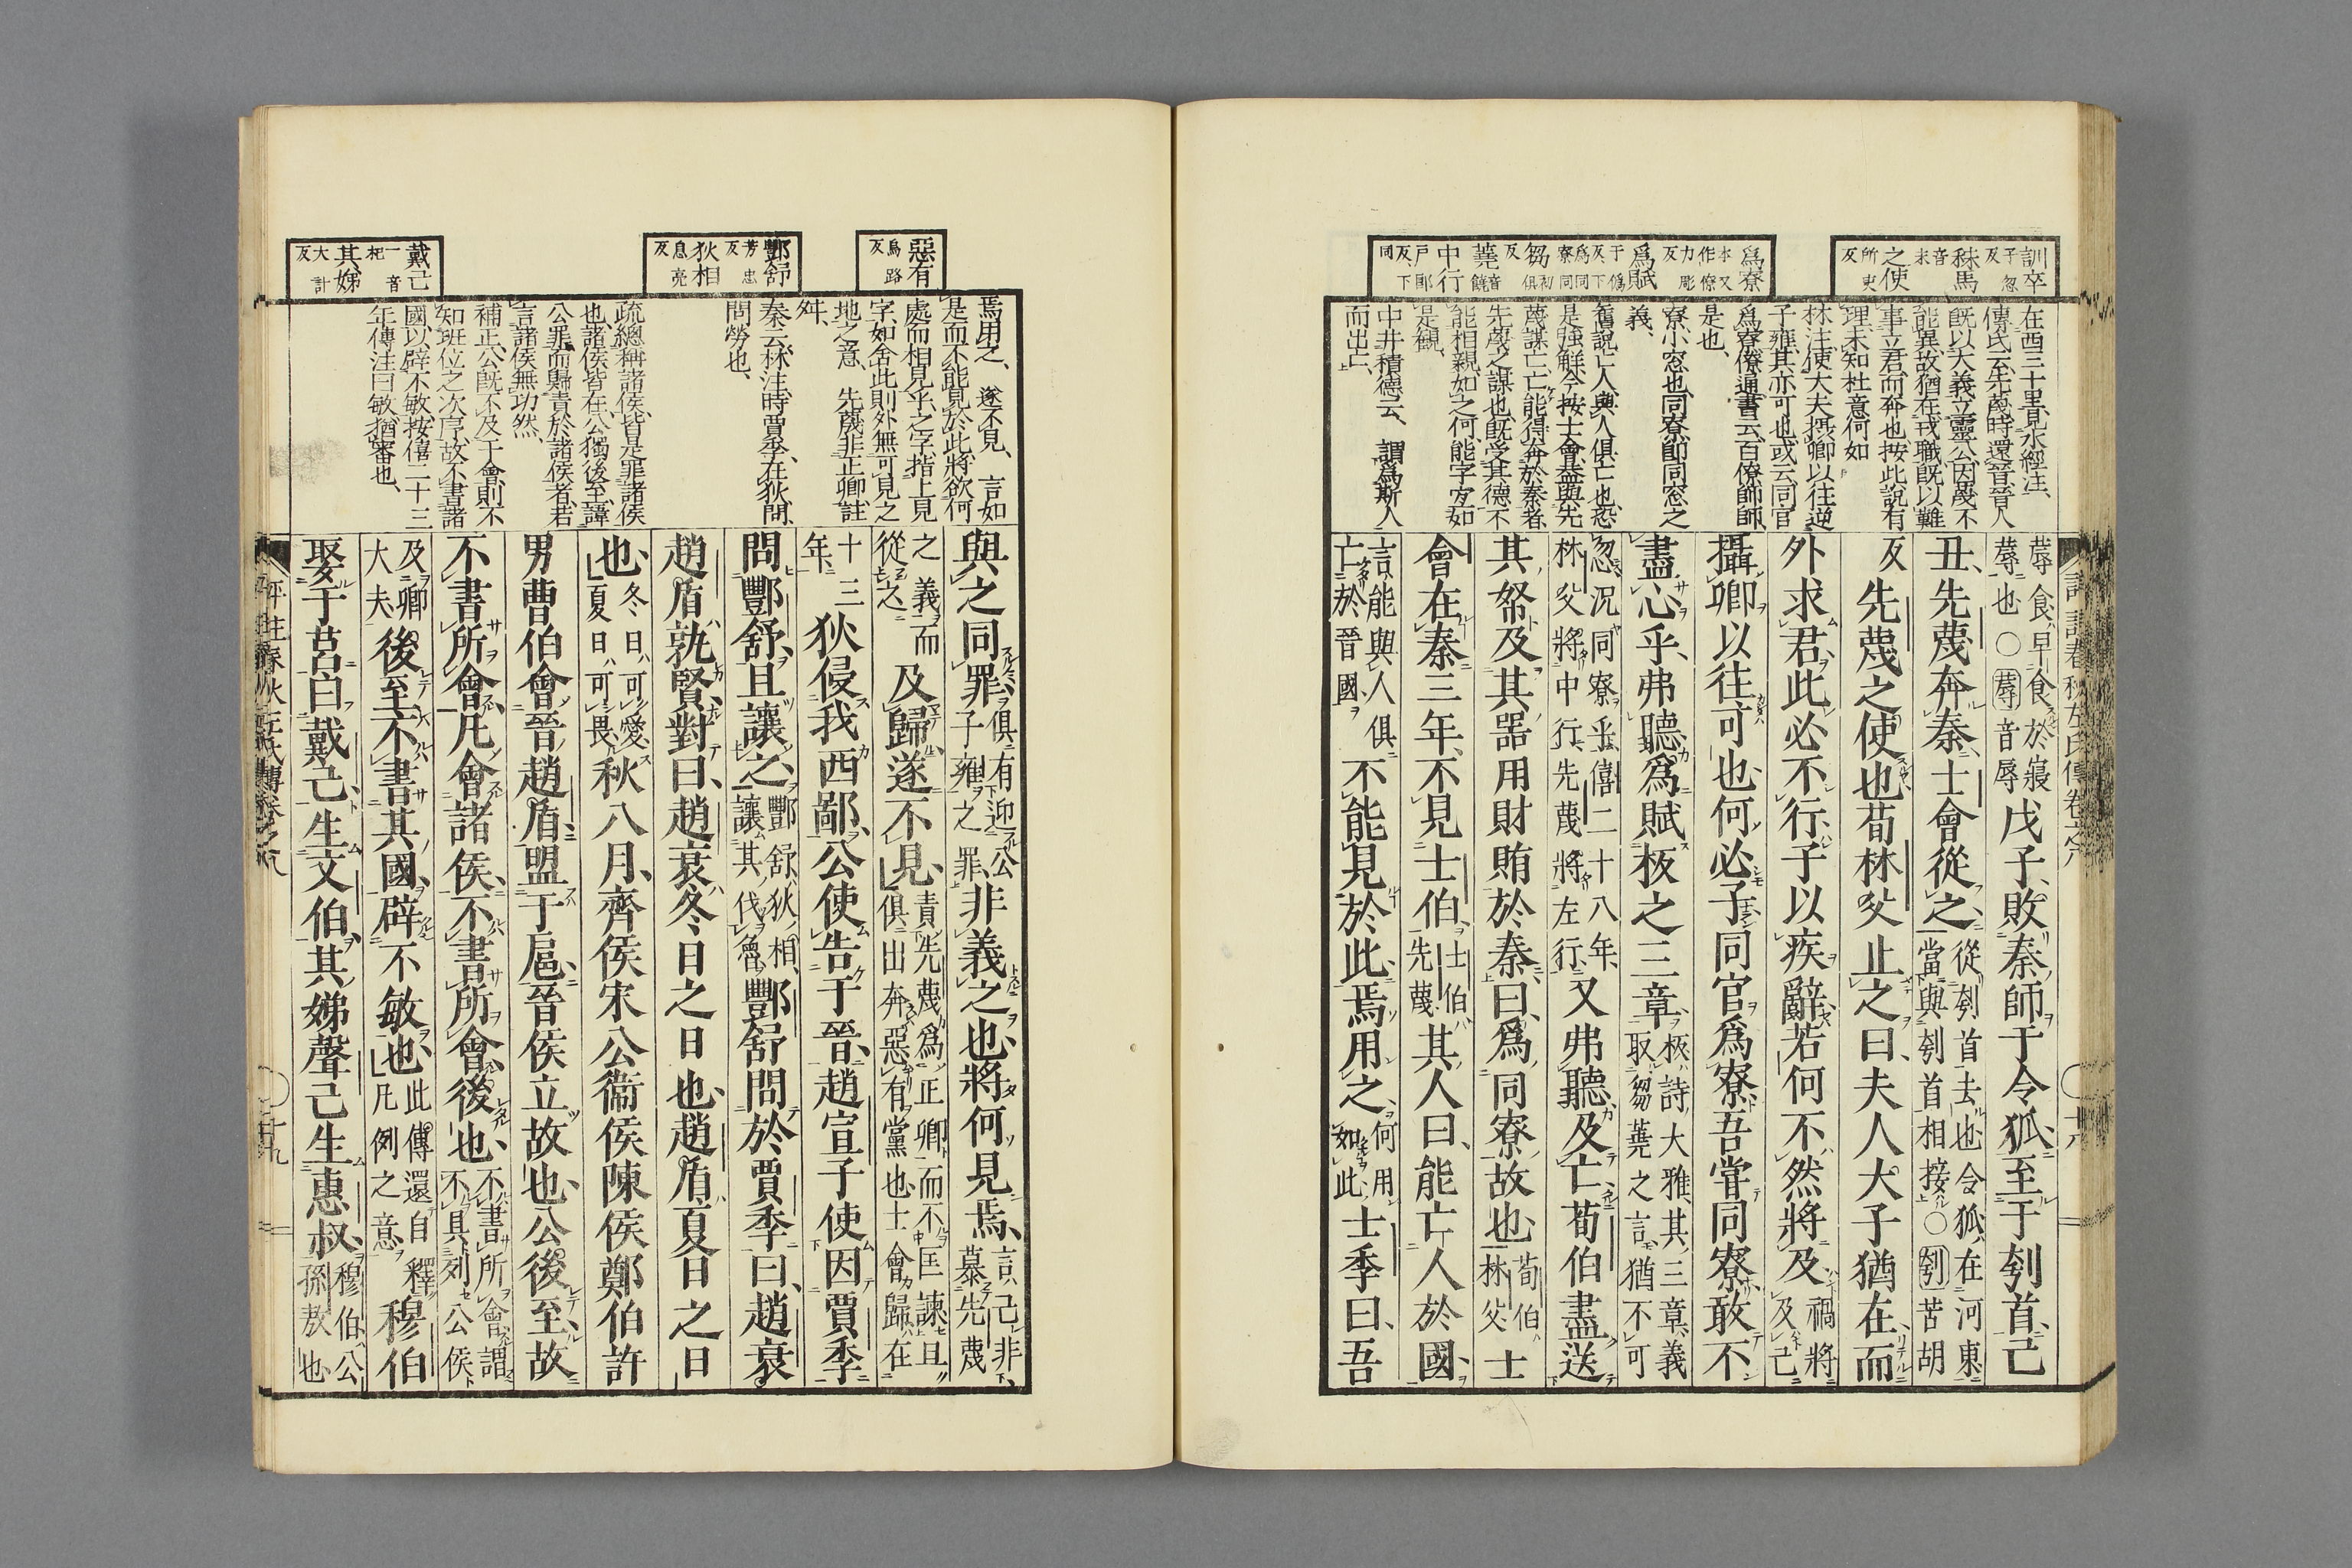 訓卒
子忽
反
秣馬
音
末
之使
所吏
反
爲寮
本又
作僚
力彫
反
爲賦
于僞
反下
爲同
寮同
芻
初
俱
反
蕘
音
饒
中行
戸郎
反下
同
在西三十里見水經注、
傳氏云至先蔑時還晉晉人
既以大義立靈公因蔑不
能異故猶在戎職既以難
事立君而奔也按此說有
理未知杜意何如
林注使大夫攝卿以往逆
子雍其亦可也或云同官
爲寮僚通書云百僚師師
是也、
寮小窓也同寮即同窓之
義、
舊說亡人與人俱亡也恐
是強鮮今按士會蓋與先
蔑謀亡亡能得奔於秦者
先蔑之謀也既受其德不
能相親如之何能字宜如
是觀
中井積德云、謂爲斯人
而出亡
蓐食早食於寢
蓐也〇蓐音辱
戊子敗秦師于令狐至于刳首己
丑先蔑奔秦士會從之
從刳首去也令狐在河東
當與刳首相接〇刳苦胡
反
先蔑之使也荀林父止之曰夫人大子猶在而
外求君此必不行子以疾辭若何不然將及
禍將
及己
攝卿以往可也何必子同官爲寮吾嘗同寮敢不
盡心乎弗聽爲賦板之三章
板詩大雅其三章義
取芻蕘之言猶不可
忽況同寮乎僖二十八年
林父將中行先蔑將左行
又弗聽及亡荀伯盡送
其帑及其器用財賄於秦曰爲同寮故也
荀伯
林父
士
會在秦三年不見士伯
士伯
先蔑
其人曰能亡人於國
言能與人俱
亡於晉國
不能見於此焉用之
何用
如此
士季曰吾
惡有
烏路
反
酆舒
芳忠
反
狄相
息亮
反
戴己
音
一
杞
其娣
大計
反
焉用之、遂不見、言如
是而不能見於此將欲何
處而相見乎之字指上見
字如舍此則外無可見之
地之意、先蔑非正卿註
舛、
秦云林注時賈季在狄問
問勞也、
疏總稱諸侯皆是罪諸侯
也諸侯皆在公獨後至諱
公罪而歸責於諸侯者若
言諸侯無功然、
補正公既不及于會則不
知班位之次序故不書諸
國以辟不敏按僖二十三
年傳注曰敏猶審也、
與之同罪
俱有迎公
子雍之罪
非義之也將何見焉
言己非
慕先蔑
之義而
從之
及歸遂不見
責先蔑爲正卿而不匡諫且
俱出奔惡有黨也士會歸在
十三
年
狄侵我西鄙公使告于晉趙宣子使因賈季
問酆舒且讓之
酆舒狄相
讓其伐魯
酆舒問於賈季曰趙衰
趙盾孰賢對曰趙衰冬日之日也趙盾夏日之日
也
冬日可愛
夏日可畏
秋八月齊侯宋公衞侯陳侯鄭伯許
男曹伯會晉趙盾盟于扈晉侯立故也公後至故
不書所會凡會諸侯不書所會後也
不書所會謂
不具列公侯
及卿
大夫
後至不書其國辟不敏也
此傳還自釋
凡例之意
穆伯
娶于莒曰戴己生文伯其娣聲己生惠叔
穆伯公
孫敖也